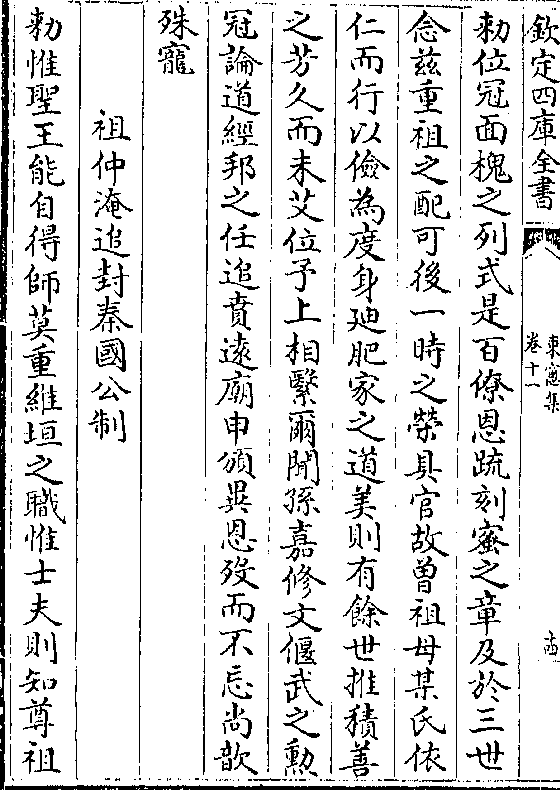 欽定四庫全書
東窻集
卷十一
十四
勅位冠面槐之列式是百僚恩疏刻蜜之章及於三世
念兹重祖之配可後一時之榮具官故曾祖母某氏依
仁而行以儉為度身廸肥家之道美則有餘世推積善
之芳久而未艾位予上相繄爾聞孫嘉修文偃武之勲
冠論道經邦之任追賁逺廟申頒異恩殁而不忘尚歆
殊寵
祖仲淹追封秦國公制
勅惟聖王能自得師莫重維垣之職惟士夫則知尊祖